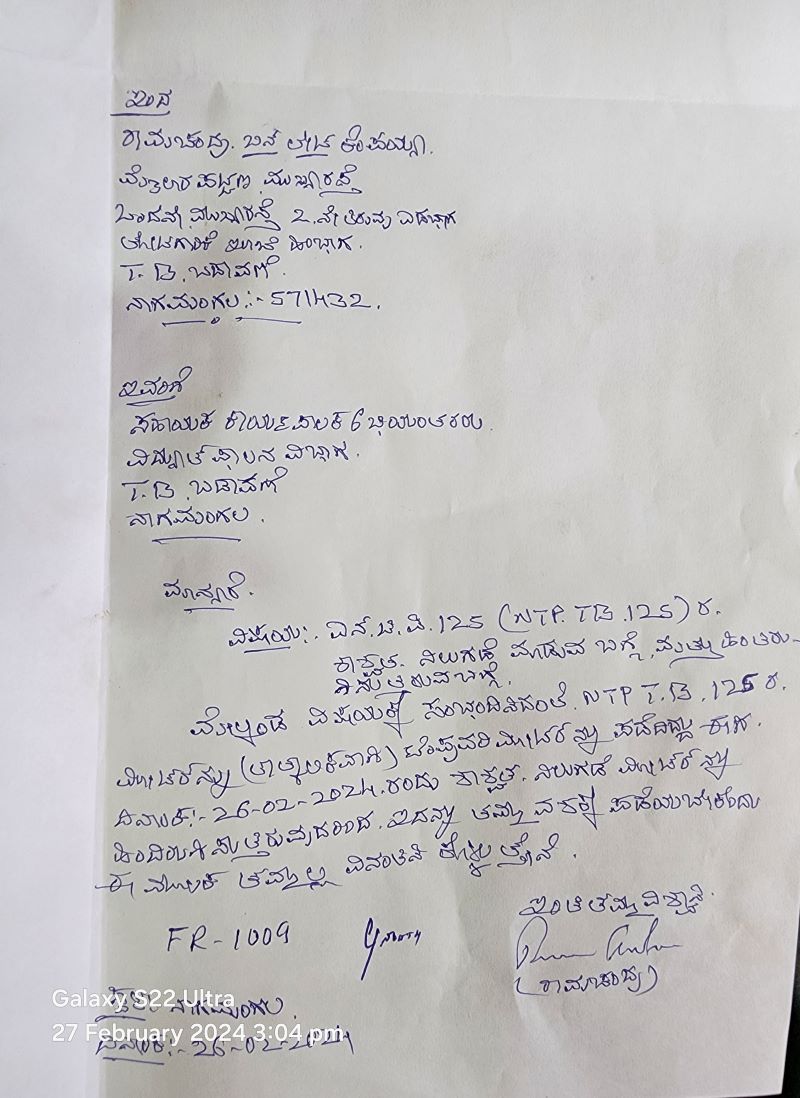 ಇಂದ
ರಾಮಚಂದ್ರ. ಬಿನ್ ಲೇಟ್ ಕೆಂಪಯ್ಯ.
ಮೈಲಾರ ಪಟ್ಟಣ ಮುಖ್ಯರಸ್ತೆ
ಒಂದನೇ ಮುಖ್ಯರಸ್ತೆ 2.ನೇ ತಿರುವು ಎಡಭಾಗ
ತೋಟಗಾರಿಕೆ ಹಿಂಭಾಗ.
T. B. ಬಡಾವಣೆ.
ನಾಗಮಂಗಲ:- 571432.
ಇವರಿಗೆ
ಸಹಾಯಕ ಕಾರ್ಯಪಾಲಕ ಇಂಜಿಯಂತರರು.
ವಿದ್ಯುತ್ ಪಾಲನ ವಿಭಾಗ.
T. B. ಬಡಾವಣೆ
ನಾಗಮಂಗಲ.
ಮಾನ್ಯರೆ.
ವಿಷಯ:. ಎನ್.ಟಿ.ಪಿ.125 (NTP. TB. 125) ರ.
ಶಾಶ್ವತ. ನಿಲುಗಡೆ ಮಾಡುವ ಬಗ್ಗೆ. ಮತ್ತು ಹಿಂತಿರು-
ಗಿಸುತ್ತಿರುವ ಬಗ್ಗೆ.
ಮೇಲ್ಕಂಡ ವಿಷಯಕ್ಕೆ ಸಂಬಂಧಿಸಿದಂತೆ. NTP T.B. 125 ರ.
ಮೀಟರ್‌ನ್ನು (ತಾತ್ಕಾಲಿಕವಾಗಿ) ಹೆಚ್ಚುವರಿ ಮೀಟರ್‌ನ್ನು ಪಡೆದಿದ್ದು ಈಗ.
ದಿನಾಂಕ:- 26-02-2024. ರಂದು ಶಾಶ್ವತ. ನಿಲುಗಡೆ ಮೀಟರ್‌ನ್ನು
ಹಿಂದಿರುಗಿಸುತ್ತಿರುವುದರಿಂದ. ಇದನ್ನು ತಮ್ಮ ವಶಕ್ಕೆ ಪಡೆಯಬೇಕೆಂದು
ಈ ಮೂಲಕ ತಮ್ಮಲ್ಲಿ ವಿನಂತಿಸಿ ಕೊಳ್ಳುತ್ತೇನೆ.
ಇಂತಿ ತಮ್ಮ ವಿಶ್ವಾಸಿ.
FR-1009
(ರಾಮಚಂದ್ರ)
ಸ್ಥಳ: ನಾಗಮಂಗಲ.
ದಿನಾಂಕ:- 26-02-2024
Galaxy S22 Ultra
27 February 2024 3:04 pm